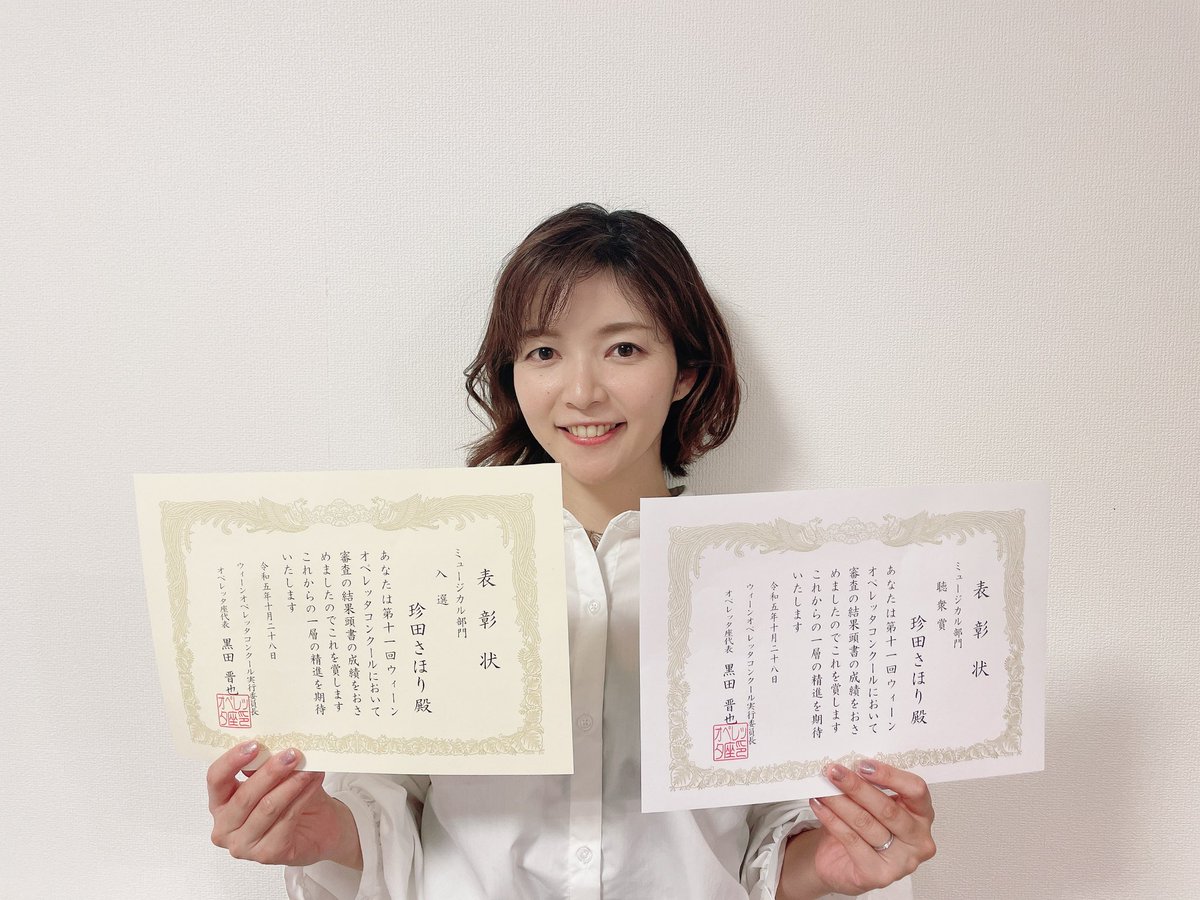 表彰状
ミュージカル部門
入選
珍田さほり殿
あなたは第十一回ウィーン
オペレッタコンクールにおいて
審査の結果頭書の成績をおさ
めましたのでこれを賞します
これからの一層の精進を期待
いたします
令和五年十月二十八日
ウィーンオペレッタコンクール実行委員長
オペレッタ座代表 黒田晋也
オペレッ
タ座印
表彰状
ミュージカル部門
聴衆賞
珍田さほり殿
あなたは第十一回ウィーン
オペレッタコンクールにおいて
審査の結果頭書の成績をおさ
めましたのでこれを賞します
これからの一層の精進を期待
いたします
令和五年十月二十八日
ウィーンオペレッタコンクール実行委員長
オペレッタ座代表 黒田晋也
オペレッ
タ座印